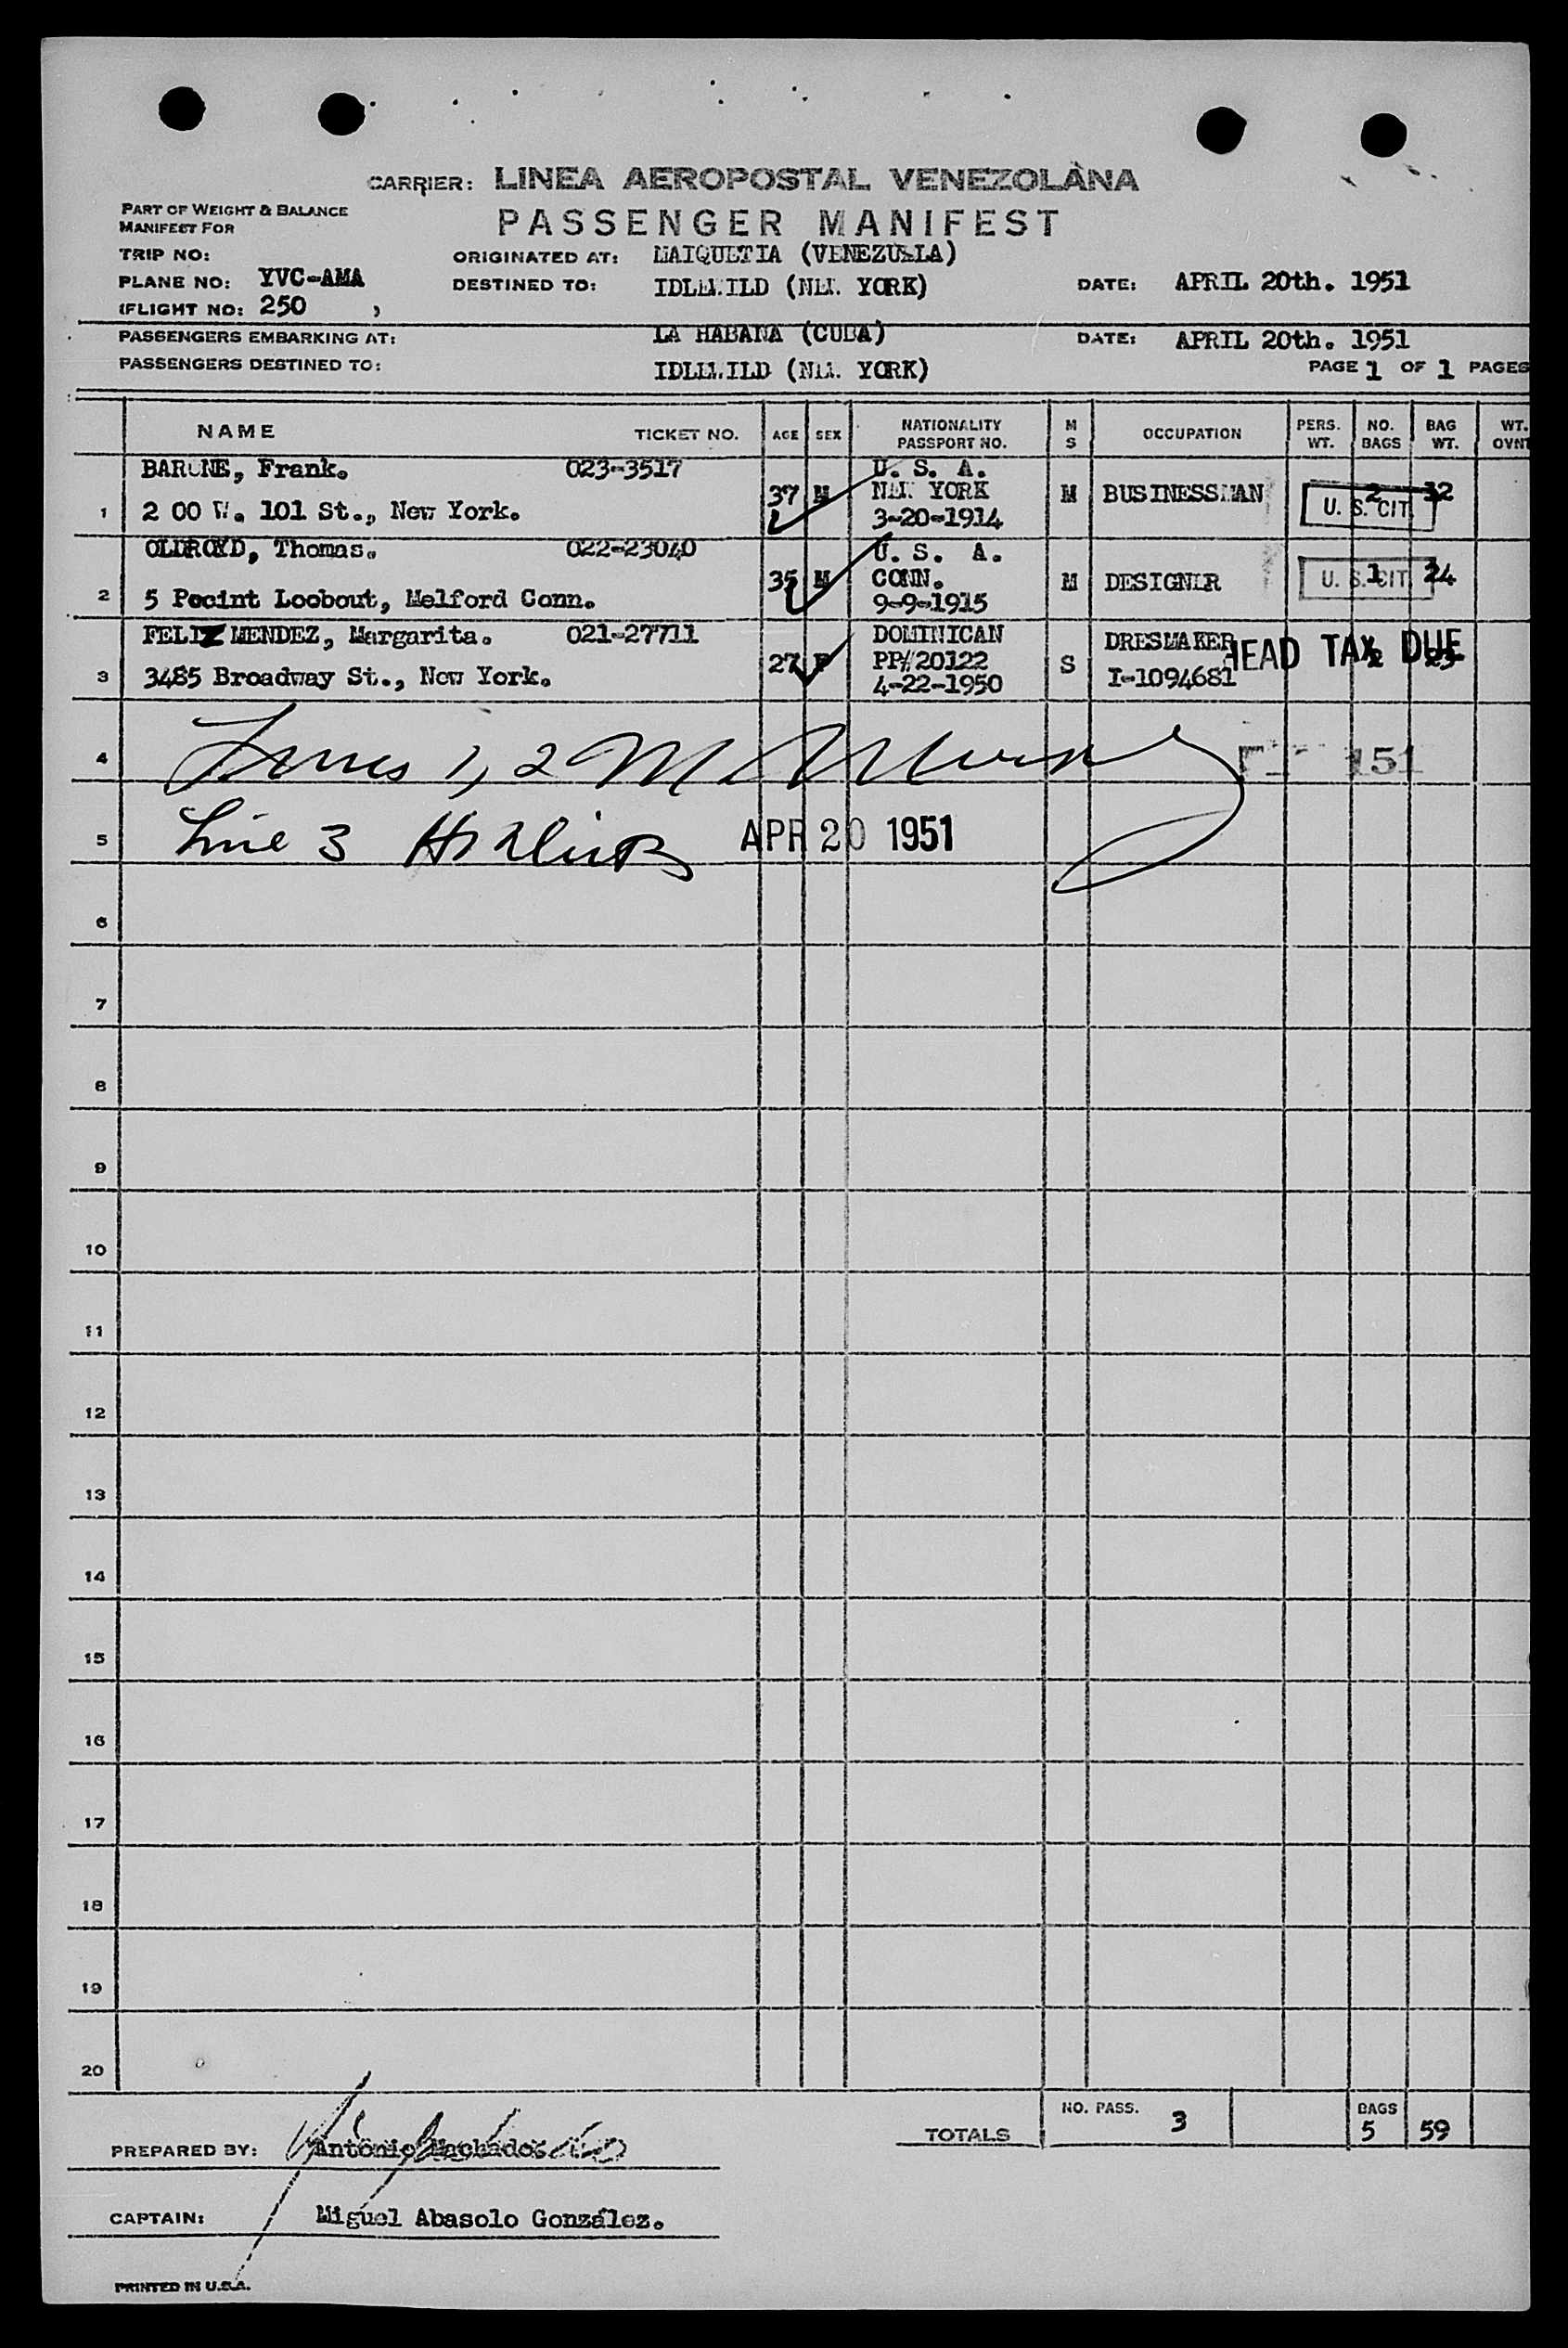 CARRIER: LINEA AEROPOSTAL VENEZOLANA
PART OF WEIGHT & BALANCE
MANIFEST FOR
PASSENGER MANIFEST
TRIP NO:
ORIGINATED AT: MAIQUETIA (VENEZUELA)
PLANE NO: YVC-AMA
DESTINED TO: IDLEWILD (NEW YORK)
DATE: APRIL 20th. 1951
(FLIGHT NO: 250 )
PASSENGERS EMBARKING AT: LA HABANA (CUBA)
DATE: APRIL 20th. 1951
PASSENGERS DESTINED TO: IDLEWILD (NEW YORK)
PAGE 1 OF 1 PAGES
NAME TICKET NO. AGE SEX NATIONALITY PASSPORT NO. M S OCCUPATION PERS. WT. NO. BAGS BAG WT. WT. OVNT
BARONE, Frank. 023-3517 U. S. A.
37 M NEW YORK M BUSINESSMAN 2
1 2 00 W. 101 St., New York. 3-20-1914 U. S. CIT.
OLDROYD, Thomas. 022-23040 U. S. A.
35 M CONN. M DESIGNER U. S. CIT. 1 24
2 5 Pocint Loobout, Melford Conn. 9-9-1915
FELIZ MENDEZ, Margarita. 021-27711 DOMINICAN DRESMAKER
27 F PP#20122 S HEAD TAX DUE 2
3 3485 Broadway St., New York. 4-22-1950 I-1094681
4 Lines 1, 2
5 Line 3 APR 20 1951
6
7
8
9
10
11
12
13
14
15
16
17
18
19
20
TOTALS NO. PASS. 3 BAGS 5 59
PREPARED BY: Antonio Machado
CAPTAIN: Miguel Abasolo González.
PRINTED IN U.S.A.